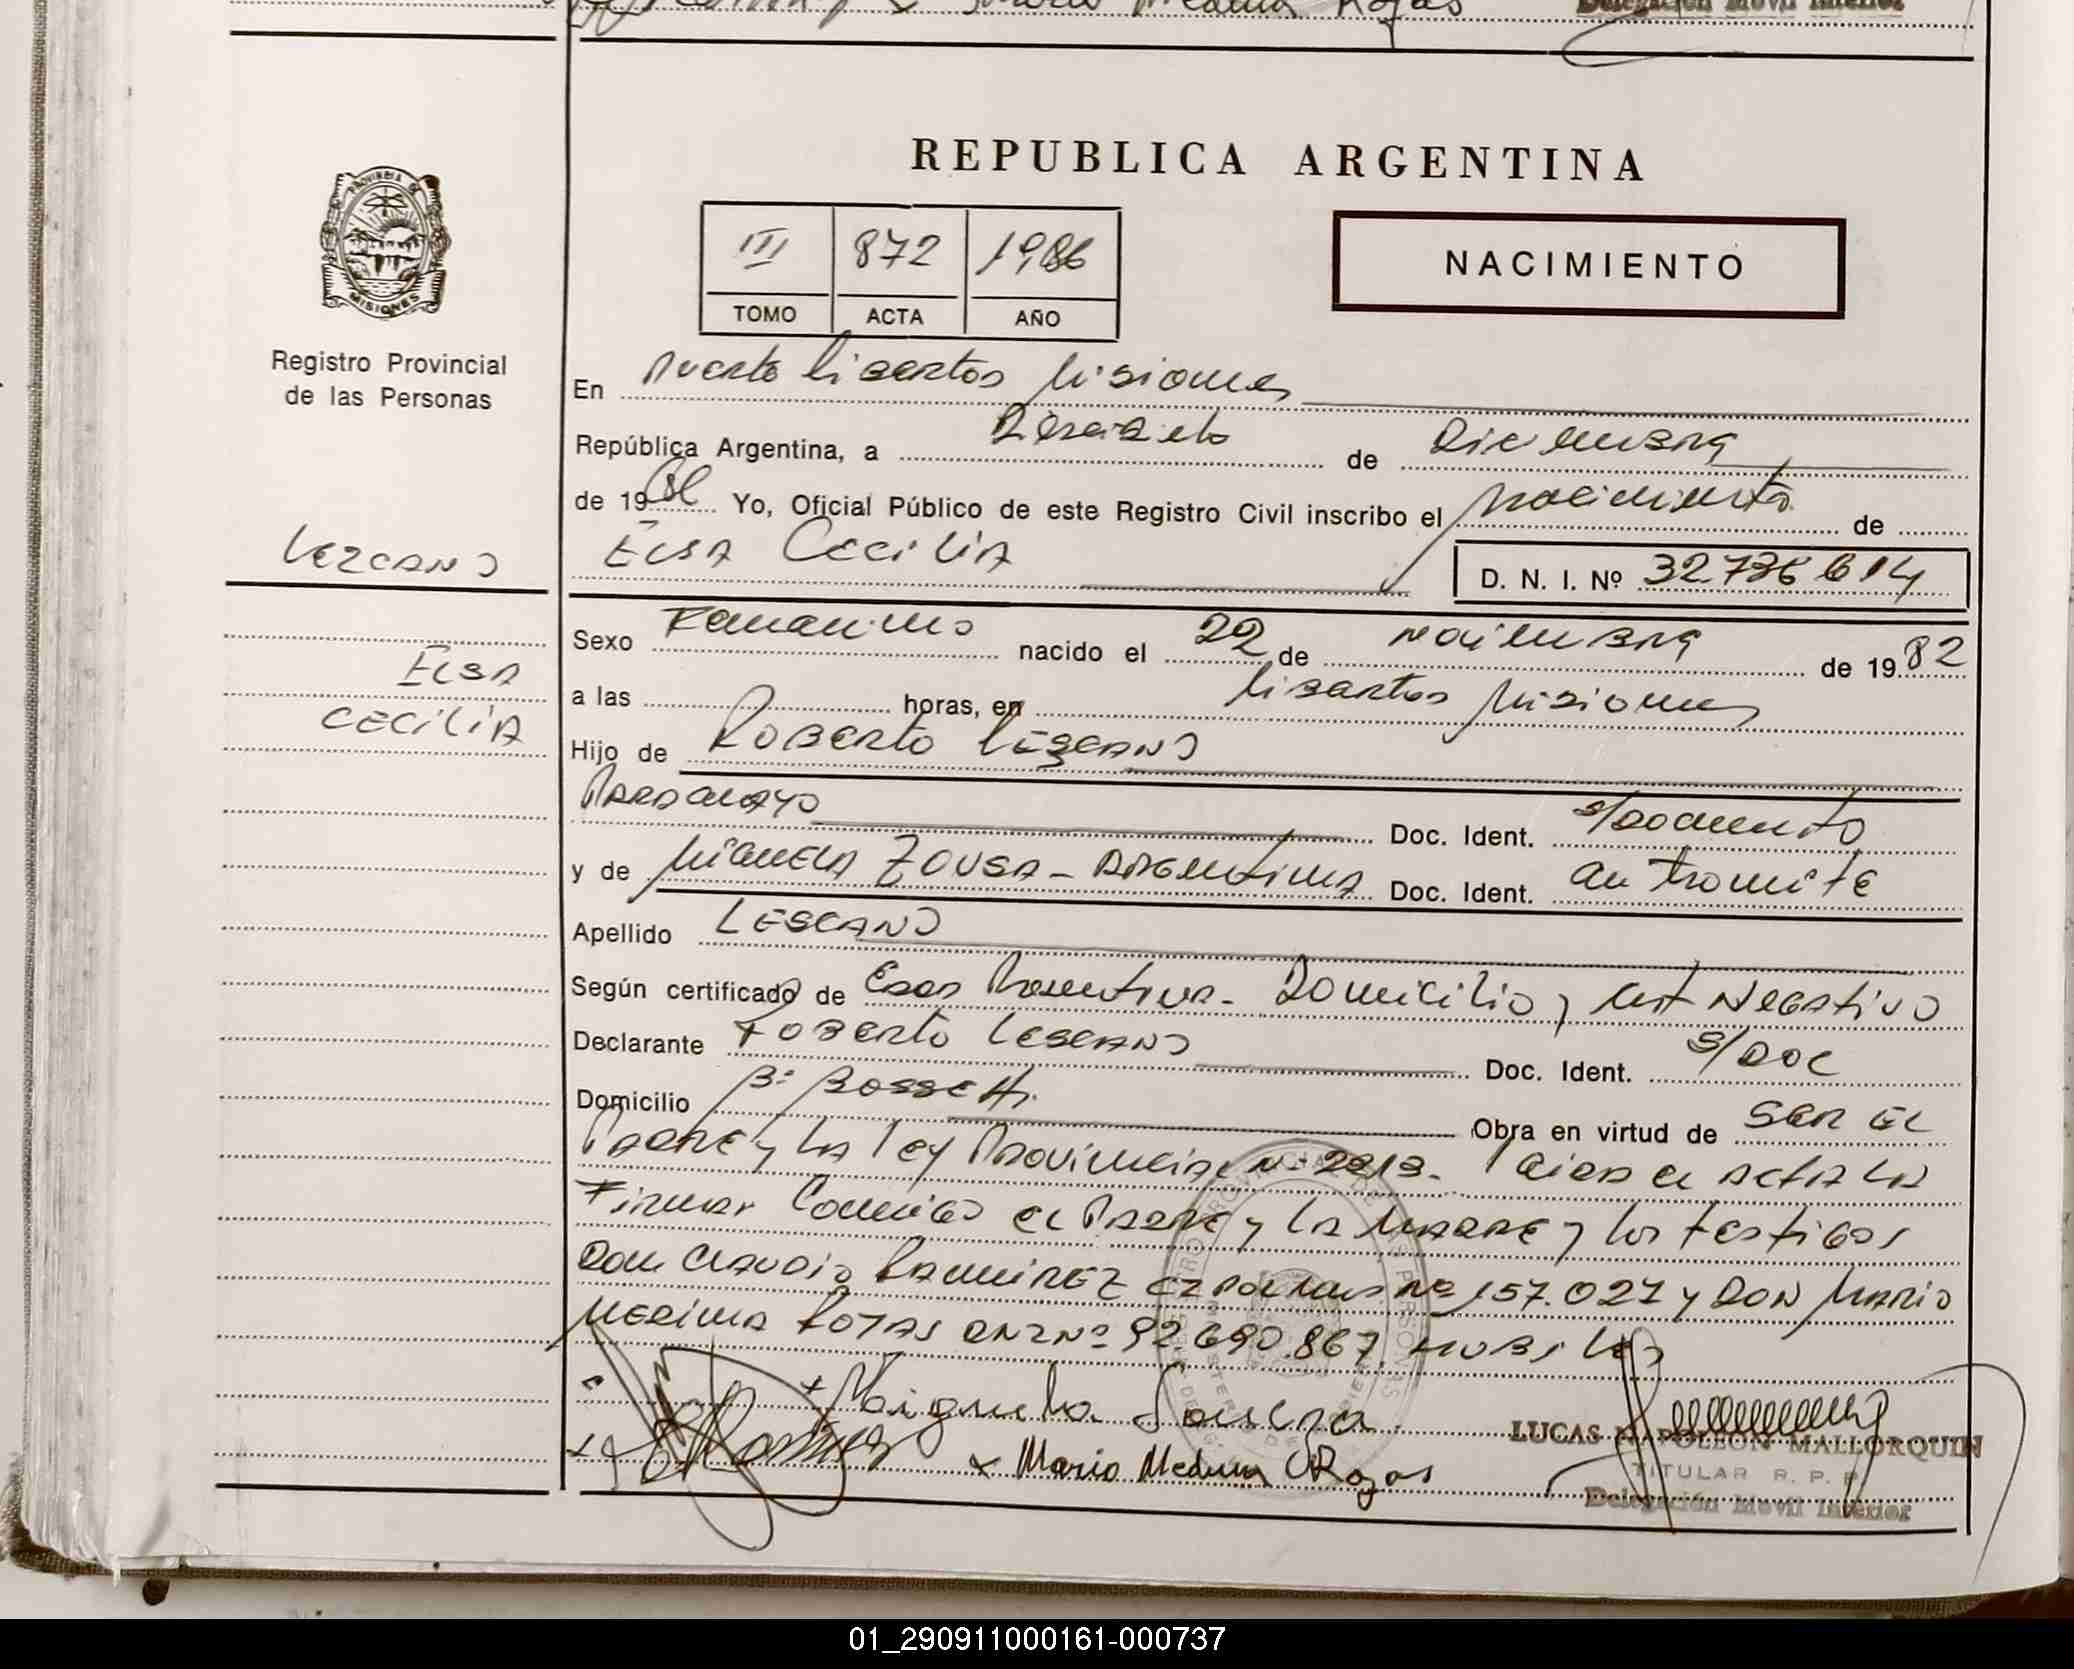 Mario Medina Rojas
Delegación Movil Interior
REPUBLICA ARGENTINA
PROVINCIA DE
MISIONES
III 872 1986
TOMO ACTA AÑO
NACIMIENTO
Registro Provincial
de las Personas
En Puerto Libertad Misiones
República Argentina, a Dieciseis de Diciembre
de 1986 Yo, Oficial Público de este Registro Civil inscribo el nacimiento de
Lezcano Elsa Cecilia D. N. I. Nº 32.736.614
Sexo Femenino nacido el 22 de noviembre de 1982
Elsa
Cecilia
a las horas, en Libertad Misiones
Hijo de Roberto Lescano
Paraguayo Doc. Ident. s/Documento
y de Miguela Zousa - Argentina Doc. Ident. en tramite
Apellido LESCANO
Según certificado de Edad Presentiva - Domicilio y Cert Negativo
Declarante Roberto Lescano Doc. Ident. S/Doc
Domicilio Bº Bossetti Obra en virtud de SER EL
Padre y La Ley Provincial Nº 2213. Leida el Acta La
Firman Conmigo el Padre y La Madre y los testigos
Don Claudio Ramirez Nº 157.027 y Don Mario
Medina Rojas DNI Nº 92.690.867.
x Miguela Souza
x Mario Medina Rojas
LUCAS NAPOLEON MALLORQUIN
TITULAR R. P. P.
Delegación Movil Interior
01_290911000161-000737